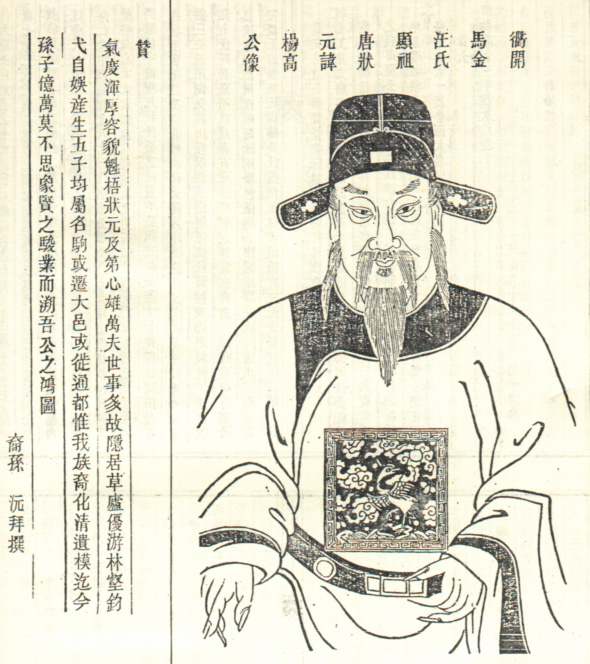 衢開
馬金
汪氏
顯祖
唐狀
元諱
楊高
公像
贊
氣度渾厚容貌魁梧狀元及第心雄萬夫世事多故隱居草廬優游林壑釣
弋自娛產生五子均屬名駒或遷大邑或徙通都惟我族裔化清遺模迄今
孫子億萬莫不思象賢之駿業而溯吾公之鴻圖
裔孫 沅拜撰